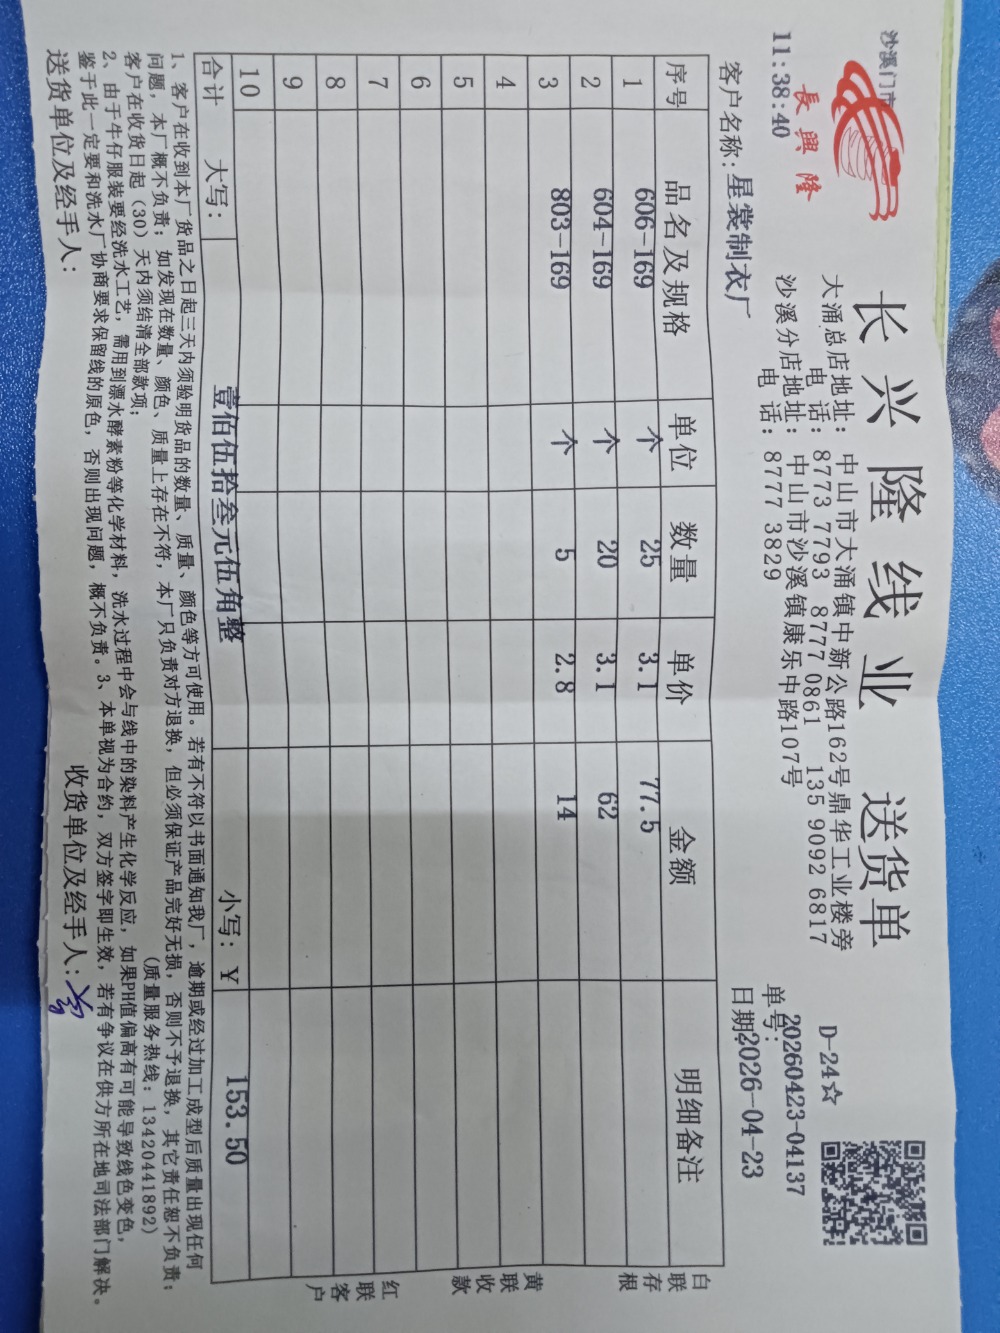 沙溪门市
11:38:40
長興隆
长兴隆线业 送货单
D-24☆
大涌总店地址：中山市大涌镇中新公路162号鼎华工业楼旁
电话：8773 7793 8777 0861 135 9092 6817
沙溪分店地址：中山市沙溪镇康乐中路107号
电话：8777 3829
单号：20260423-04137
客户名称：星裳制衣厂
日期2026-04-23
序号 品名及规格 单位 数量 单价 金额 明细备注
1 606-169 个 25 3.1 77.5
2 604-169 个 20 3.1 62
3 803-169 个 5 2.8 14
4
5
6
7
8
9
10
合计 大写：壹佰伍拾叁元伍角整 小写：¥ 153.50
白联存根
黄联收款
红联客户
1、客户在收到本厂货品之日起三天内须验明货品的数量、质量、颜色等方可使用。若有不符以书面通知我厂，逾期或经过加工成型后质量出现任何
问题，本厂概不负责；如发现在数量、颜色、质量上存在不符，本厂只负责对方退换，但必须保证产品完好无损，否则不予退换，其它责任恕不负责；
客户在收货日起（30）天内须结清全部款项；
（质量服务热线：13420441892）
2、由于牛仔服装要经洗水工艺，需用到漂水酵素粉等化学材料，洗水过程中会与线中的染料产生化学反应，如果PH值偏高有可能导致线色变色，
鉴于此一定要和洗水厂协商要求保留线的原色，否则出现问题，概不负责。3、本单视为合约，双方签字即生效，若有争议在供方所在地司法部门解决。
送货单位及经手人：
收货单位及经手人：